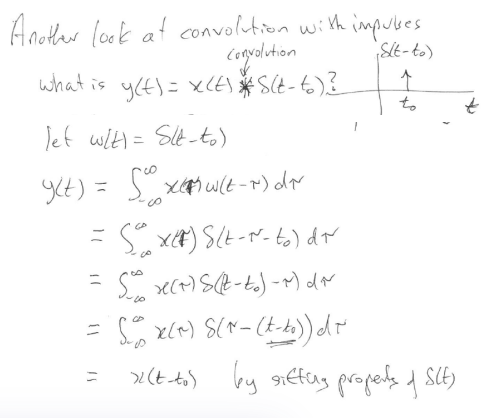 Another look at convolution with impulses
convolution
δ(t-t₀)
what is y(t) = x(t) * δ(t-t₀)?
t₀ t
let w(t) = δ(t-t₀)
y(t) = ∫_{-∞}^{∞} x(τ) w(t-τ) dτ
= ∫_{-∞}^{∞} x(τ) δ(t-τ-t₀) dτ
= ∫_{-∞}^{∞} x(τ) δ((t-t₀)-τ) dτ
= ∫_{-∞}^{∞} x(τ) δ(τ-(t-t₀)) dτ
= x(t-t₀) by sifting property of δ(t)